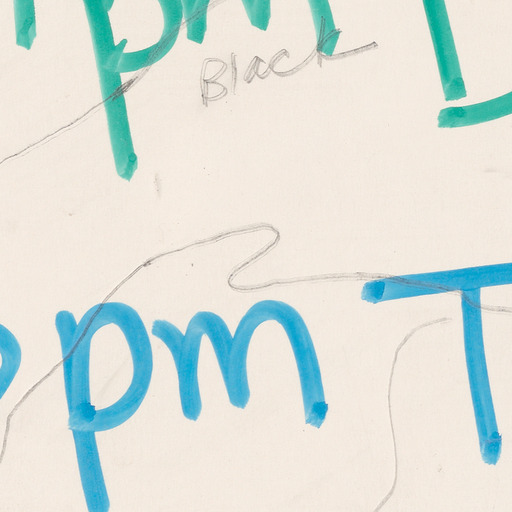 pm
Black
pm T